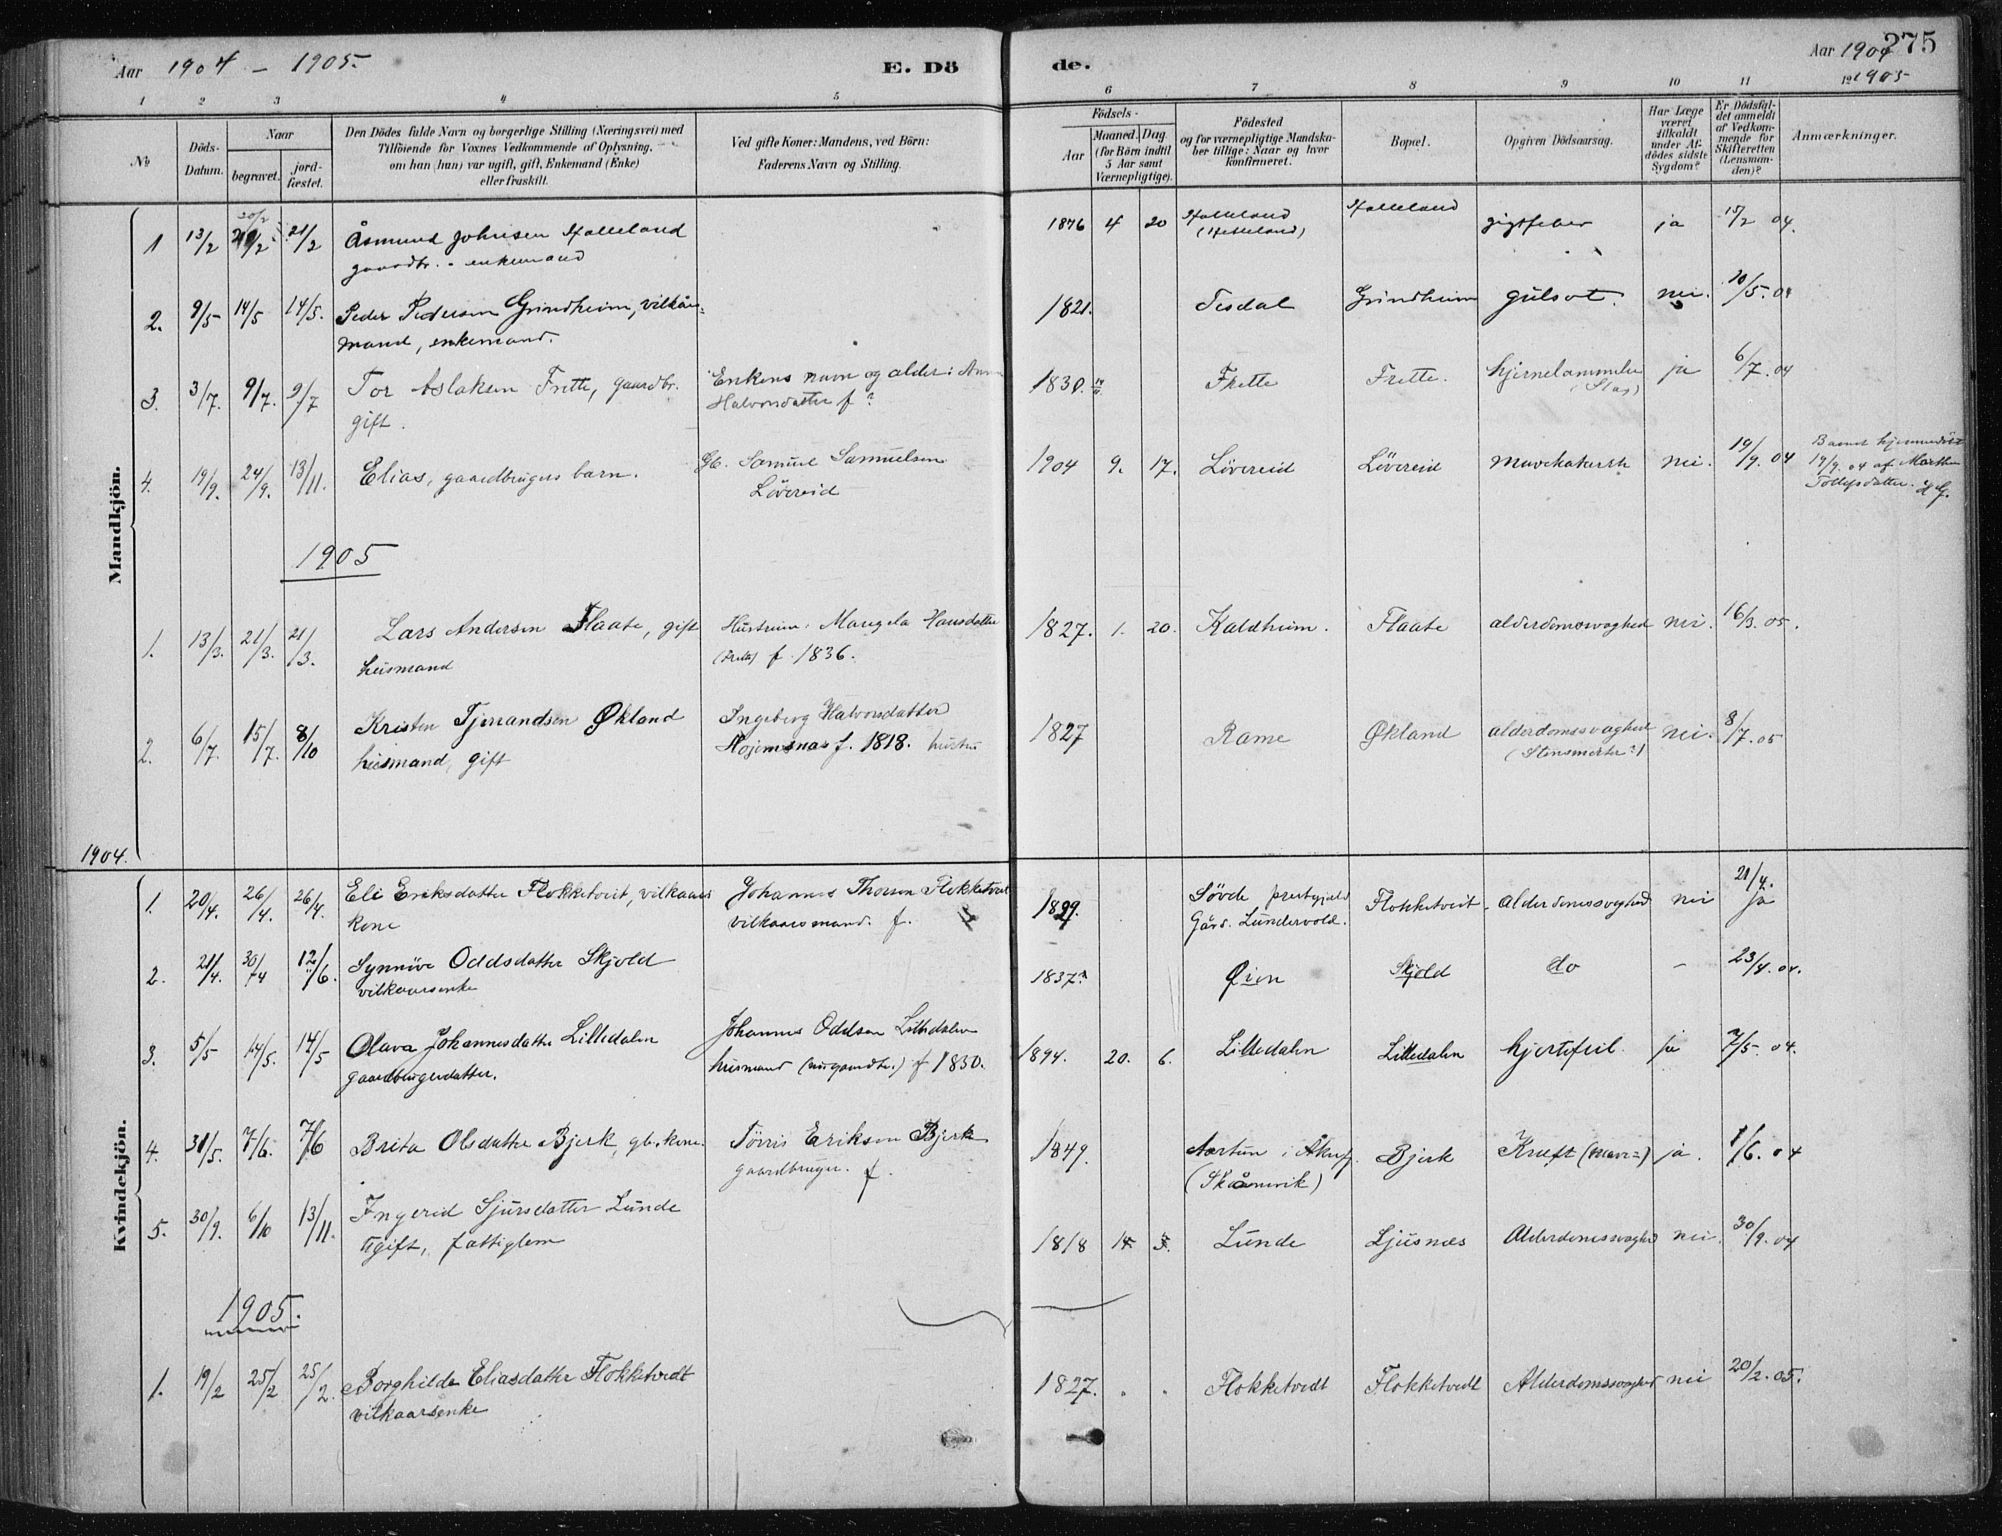 Aar 1904 - 1905.
E. Dö
de.
Aar 1904
1905
275
1 2 3 4 5 6 7 8 9 10 11 12
No
Döds-Datum.
Naar
begravet.
jord-fæstet.
Den Dödes fulde Navn og borgerlige Stilling (Næringsvei) med
Tilföiende for Voxnes Vedkommende af Oplysning,
om han (hun) var ugift, gift, Enkemand (Enke)
eller fraskilt.
Ved gifte Koner: Mandens, ved Börn:
Faderens Navn og Stilling.
Födsels-
Aar
Maaned. Dag.
(for Börn indtil
5 Aar samt
Værnepligtige).
Födested
og for værnepligtige Mandska-
ber tillige: Naar og hvor
konfirmeret.
Bopæl.
Opgiven Dödsaarsag.
Har Læge
været
tilkaldt
under Af-
dödes sidste
Sygdom?
Er Dödsfal-
det anmeldt
af Vedkom-
mende for
Skifteretten
(Lensman-
den)?
Anmærkninger.
Mandkjön.
1 13/2 20/2 21/2 Åsmund Johnsen Halleland 1876 4 20 Halleland Halleland gigtfeber ja 15/2 04.
gaardbr. - enkemand
2. 9/5 14/5 14/5. Peder Pedersen Grindheim, vilkårs- 1821. Tesdal Grindheim gulsot. nei. 10/5. 04
mand, enkemand.
3. 3/7. 9/7. 9/7 Tor Aslaksen Frette, gaardbr. Enkens navn og alder: Anna 1830. Frette Frette. hjernelammelse ja 6/7. 04
gift. Halvorsdatter f? (Slag)
4. 19/9. 24/9. 13/11. Elias, gaardbrugers barn. Gb. Samuel Samuelsen 1904 9. 17. Lövereid Lövereid Mavekatarrh nei. 19/9. 04 Barnet hjemmedöbt
Lövereid 19/9. 04 af Marthe
Tollefsdatter. HG.
1905
1. 13/3. 21/3. 21/3. Lars Andersen Flaate, gift Hustruen: Mangela Hansdatter 1827. 1. 20. Kaldheim. Flaate alderdomsvaghed nei. 16/3. 05.
husmand f. 1836.
2. 6/7. 15/7. 8/10 Kristen Tjerandsen Økland Ingeborg Halvorsdatter 1827 Rame Økland alderdomssvaghed nei. 8/7. 05
husmand, gift f. 1818. hustru (Stensmerter?)
1904.
Kvindekjön.
1. 20/4. 26/4. 26/4. Eli Eriksdatter Flokketveit, vilkaars Johannes Thorsen Flokketveit 1829. Sövde prestegjeld Flokketveit. Alderdomssvaghed nei 21/4.
kone vilkaarsmand. f. Gård. Lundervold. ja
2. 21/4. 30/4 12/6. Synnöve Oddsdatter Skjold 1837? Øien Skjold do - 23/4. 04.
vilkaarsenke
3. 5/5 14/5. 14/5 Olava Johannesdatter Lilledalen Johannes Oddsen Lilledalen 1894. 20. 6. Lilledalen Lilledalen hjertefeil. ja 7/5. 04.
gaardbrugerdatter. husmand f 1850.
4. 31/5. 7/6. 7/6 Brita Olsdatter Bjerk, gb. kone. Törris Eriksen Bjerk 1849. Aartun i Åkref. Bjerk Kræft (mave=) ja. 1/6. 04
gaardbruger. f. (Skånevik)
5. 30/9. 6/10 13/11. Ingerid Sjursdatter Lunde 1818 Lunde Ljusnæs Alderdomssvaghed nei. 30/9. 04
ugift, fattiglem
1905.
1. 19/2 25/2 25/2. Borghilde Eliasdatter Flokketvedt 1827. Flokketvedt Flokketvedt Alderdomssvaghed nei 20/2. 05.
vilkaarsenke